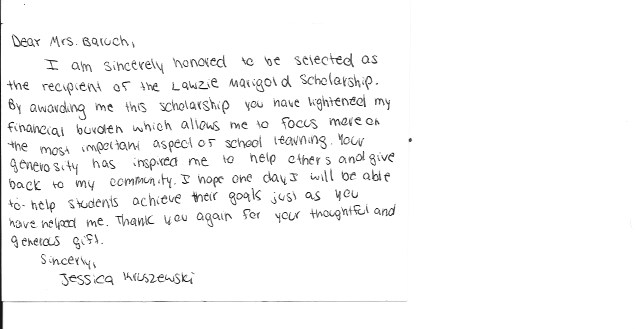 Dear Mrs. Baruch,
I am sincerely honored to be selected as
the recipient of the Lawzie Marigold Scholarship.
By awarding me this scholarship you have lightened my
financial burden which allows me to focus more on
the most important aspect of school learning. Your
generosity has inspired me to help others and give
back to my community. I hope one day I will be able
to help students achieve their goals just as you
have helped me. Thank you again for your thoughtful and
generous gift.
Sincerly,
Jessica Kruszewski